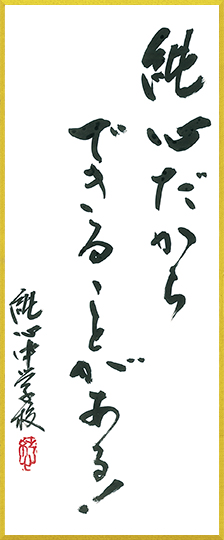 純心だから
できることがある!
純心中学校